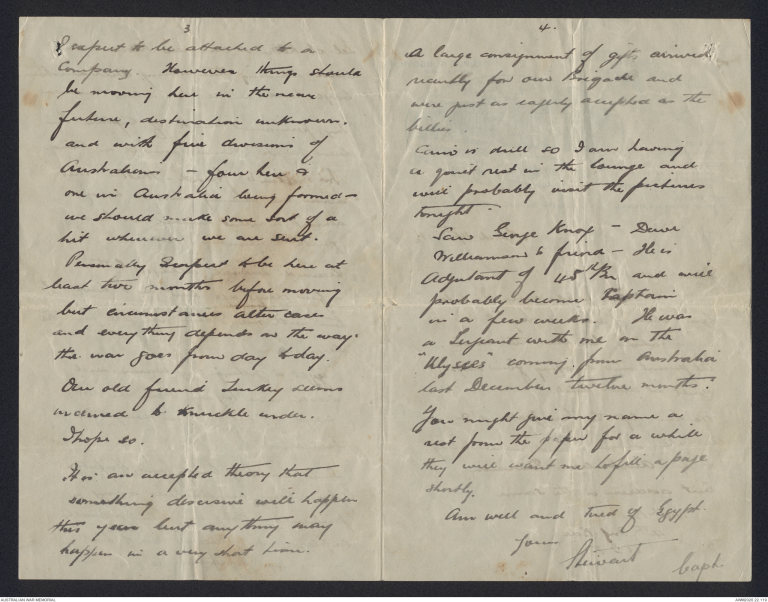 3
I expect to be attached to a
Company. However things should
be moving here in the near
future, destination unknown.
and with five divisions of
Australians - four here &
one in Australia being formed -
we should make some sort of a
hit wherever we are sent.
Personally I expect to be here at
least two months before moving
but circumstances alter cases
and everything depends on the way
the war goes from day to day.
Our old friend Turkey seems
inclined to knuckle under.
I hope so.
It is an accepted theory that
something decisive will happen
this year but anything may
happen in a very short time.
4.
A large consignment of gifts arrived
recently for our Brigade and
were just as eagerly accepted as the
billies.
Cairo is dull so I am having
a quiet rest in the lounge and
will probably visit the pictures
tonight.
Saw George Knox - Dave
Williamson's friend - He is
Adjutant of 45th Bn and will
probably become Captain
in a few weeks. He was
a Sergeant with me on the
"Ulysses" coming from Australia
last December twelve months.
You might give my name a
rest from the paper for a while
they will want me to fill a page
shortly.
Am well and tired of Egypt.
Yours
Stewart
Capt.
AUSTRALIAN WAR MEMORIAL